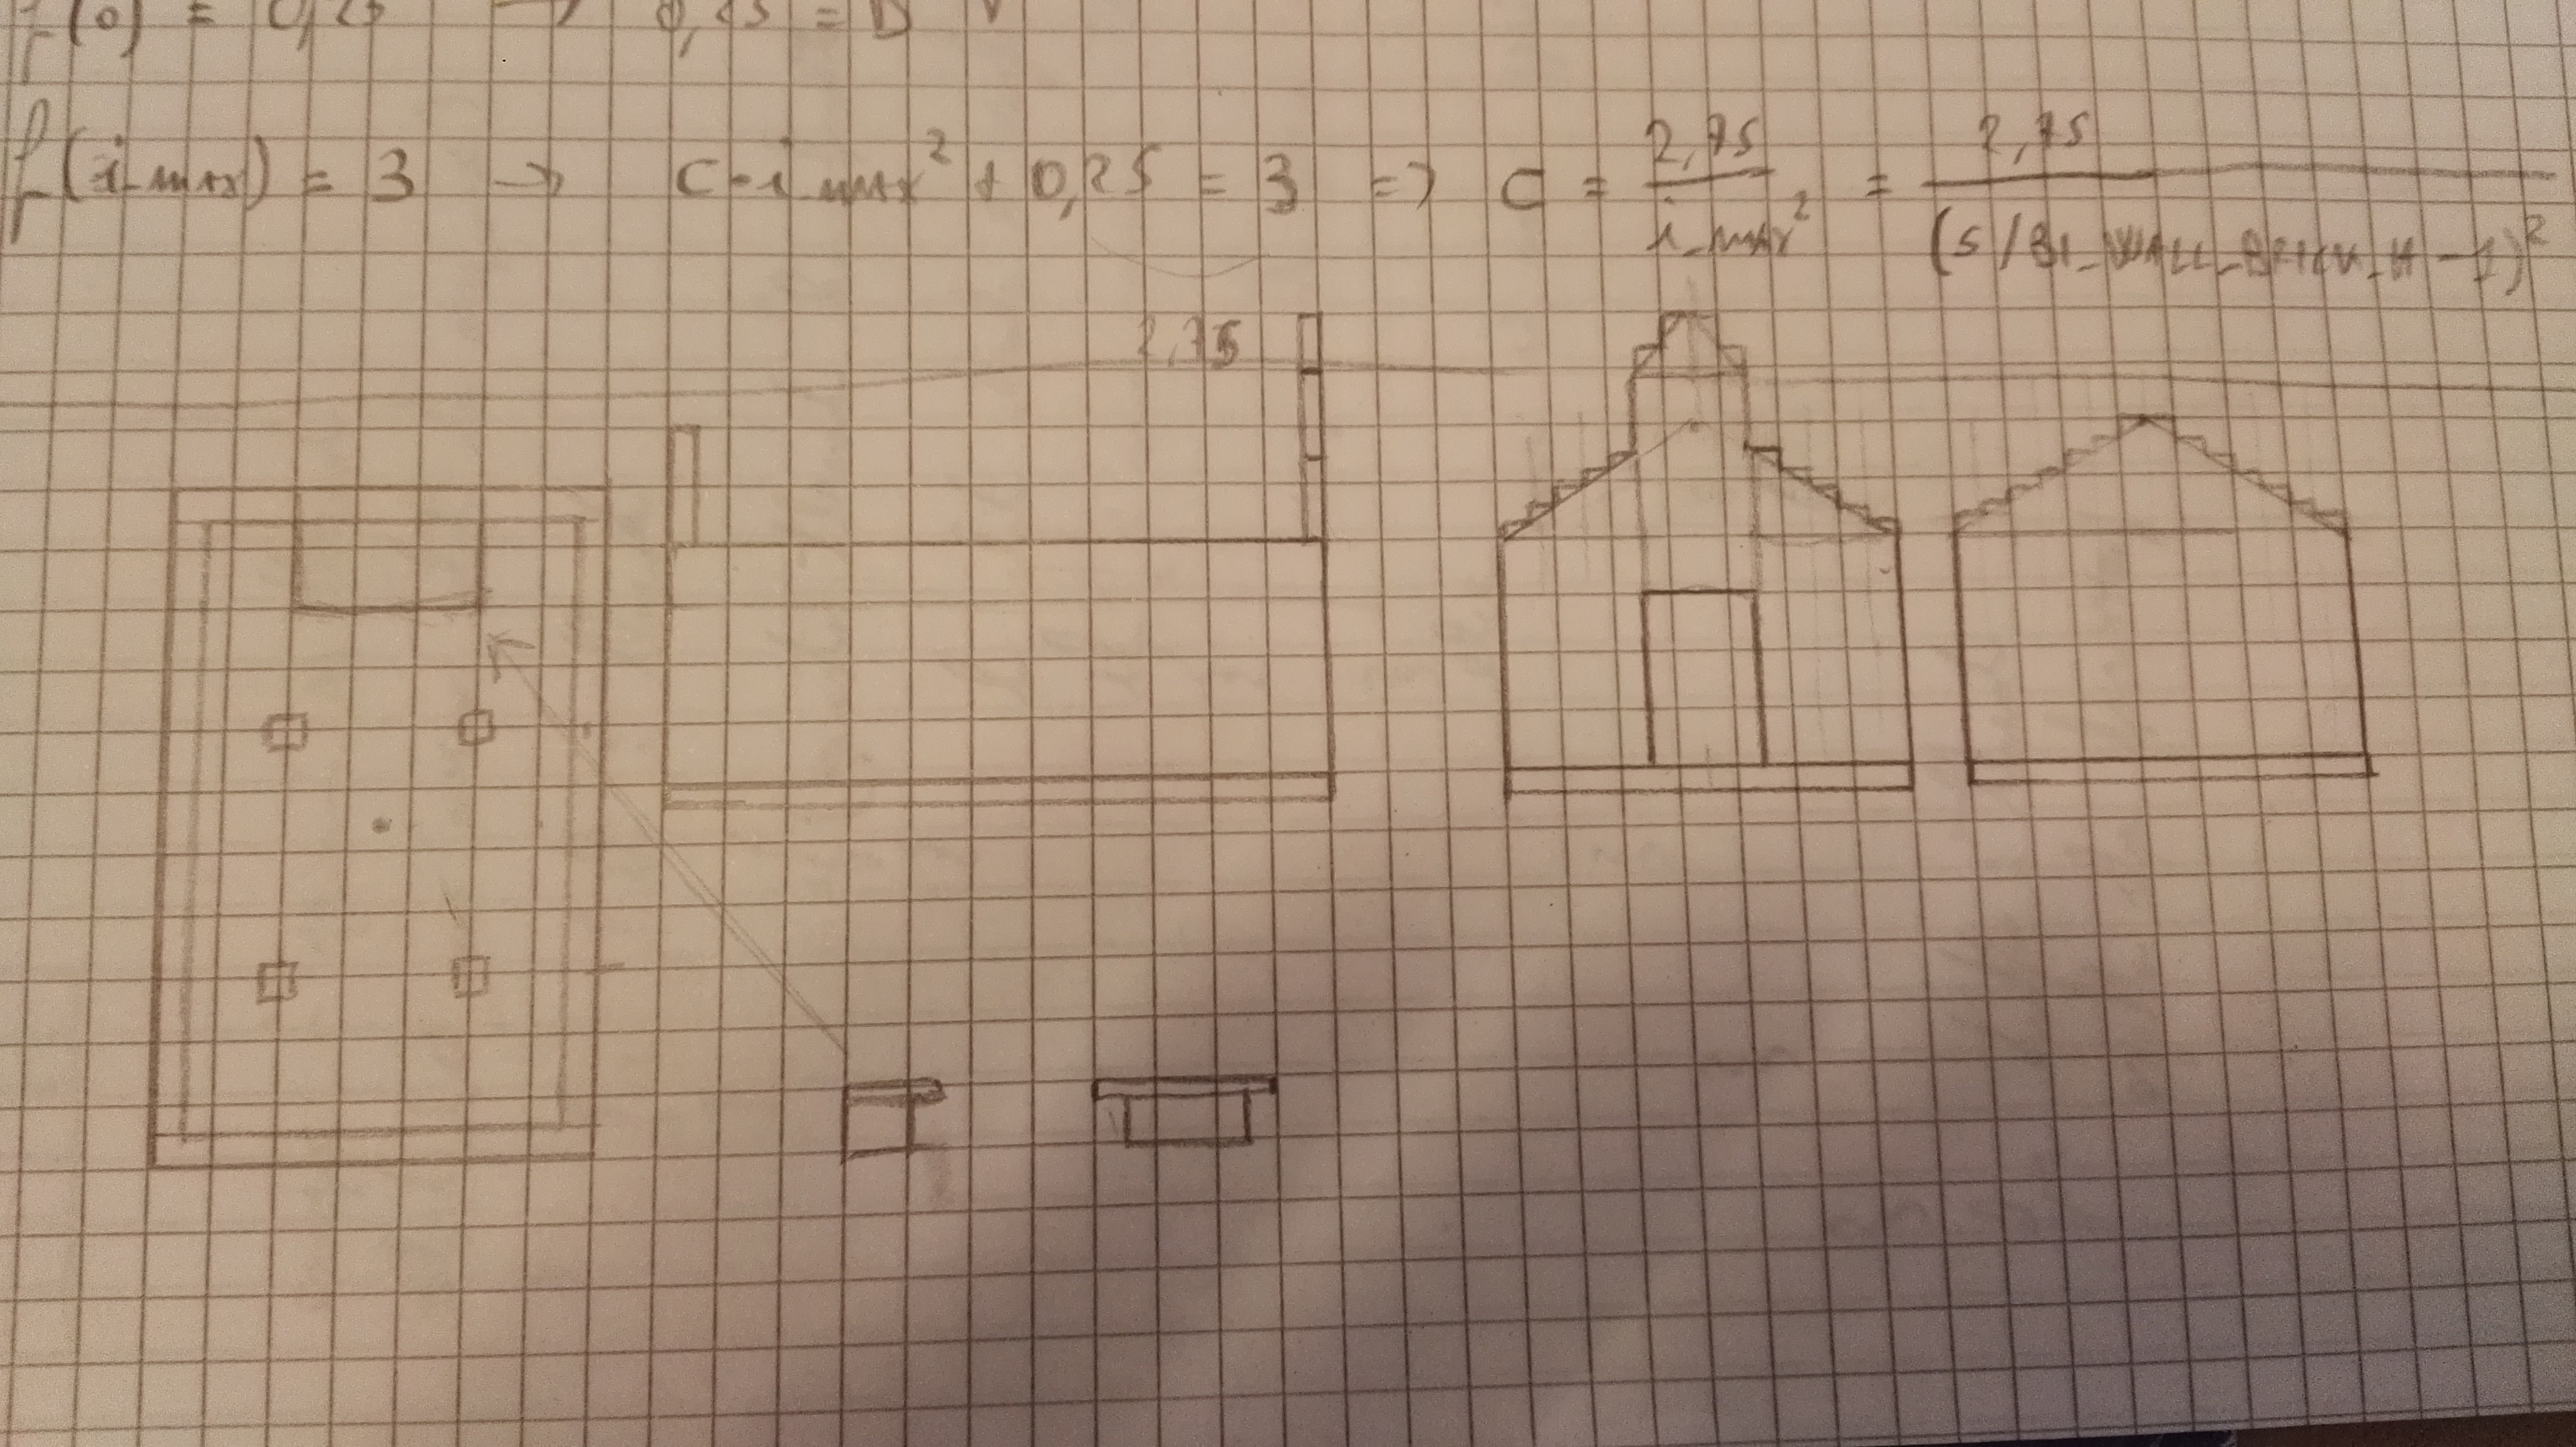 f(0) = 0,25 → 0,25 = D
f(i_max) = 3 → C·i_max² + 0,25 = 3 => C = 2,75 / i_max² = 2,75 / (5/BI_WALL_BRICK_H - 1)²
2,75